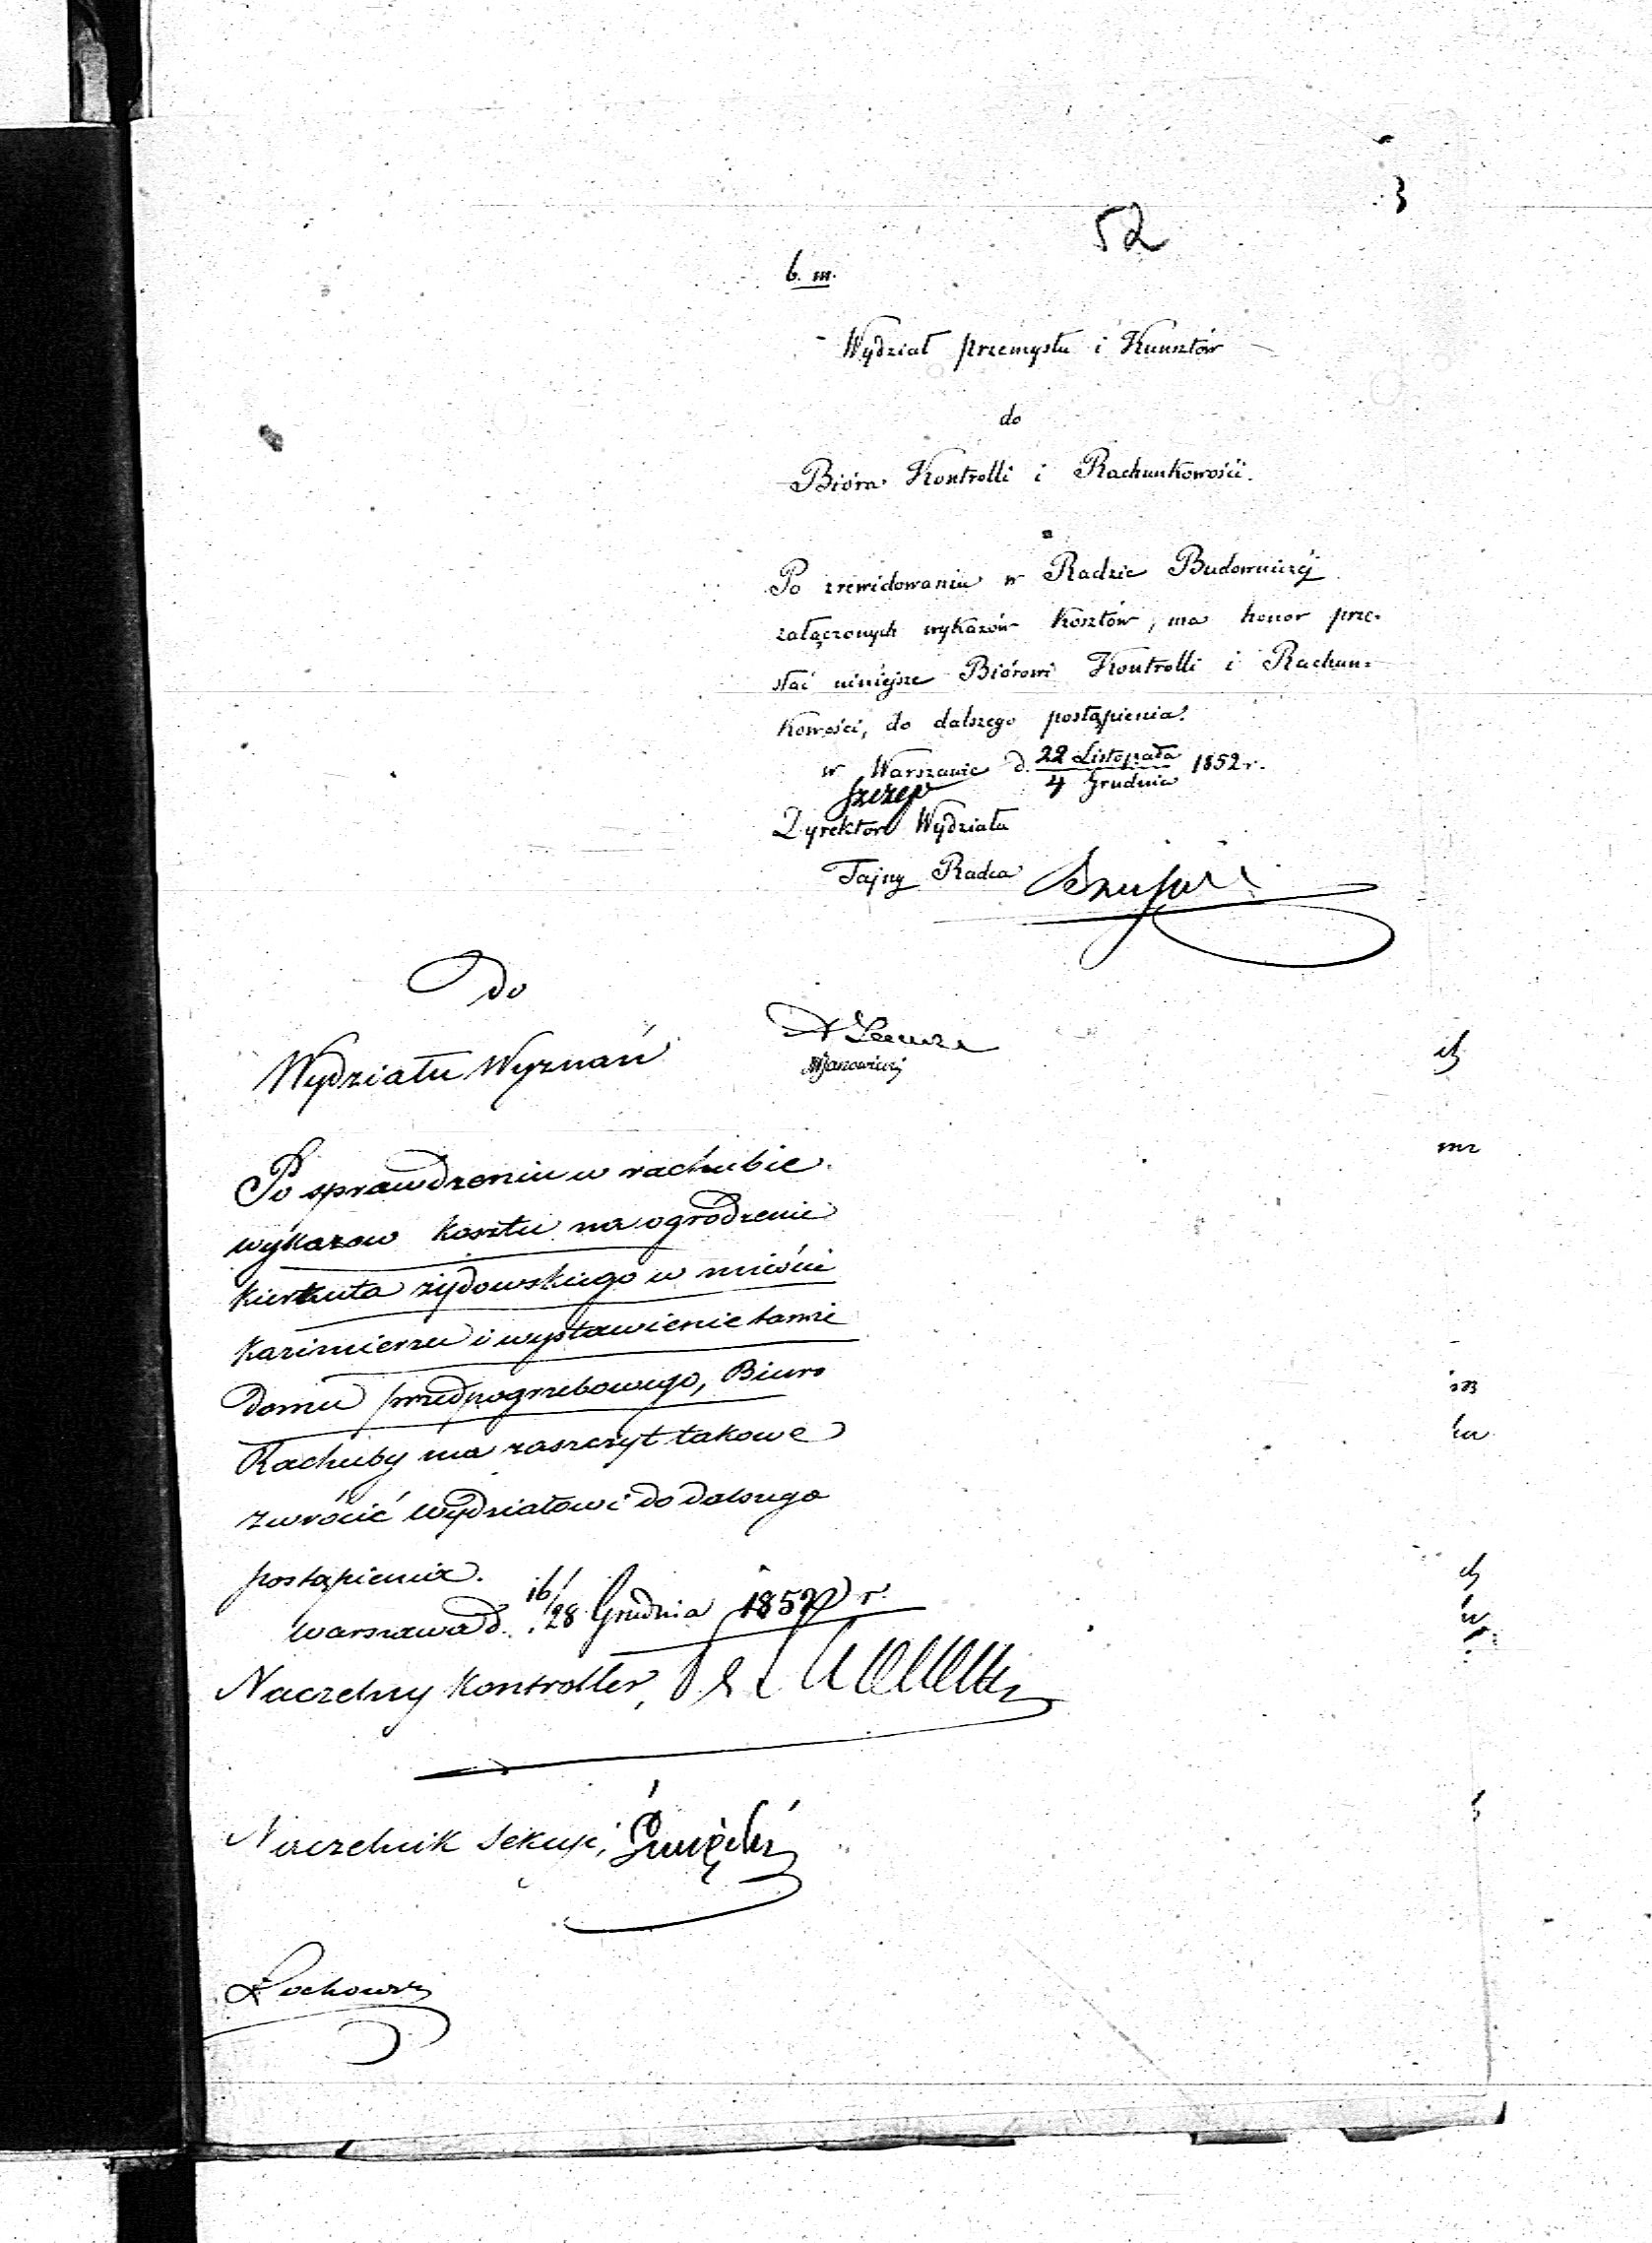 52
b. m.
Wydział przemysłu i Kunsztów
do
Bióra Kontrolli i Rachunkowości.
Po zrewidowaniu w Radzie Budowniczéj
załączonych wykazów kosztów, ma honor prze-
słać niniejsze Biórowi Kontrolli i Rachun-
kowości, do dalszego postąpienia.
w Warszawie d. 22 Listopada / 4 Grudnia 1852 r.
Dyrektor Wydziału
Tajny Radca
Do
Wydziału Wyznań
Po sprawdzeniu w rachubie
wykazow kosztu na ogrodzenie
kierkuta żydowskiego w mieście
Kazimierzu i wystawienie tamże
Domu przedpogrzebowego, Biuro
Rachuby ma zaszczyt takowe
zwrócić Wydziałowi do dalszego
postąpienia.
Warszawa d. 16/28 Grudnia 1852 r.
Naczelny Kontroller,
Naczelnik Sekcyi,